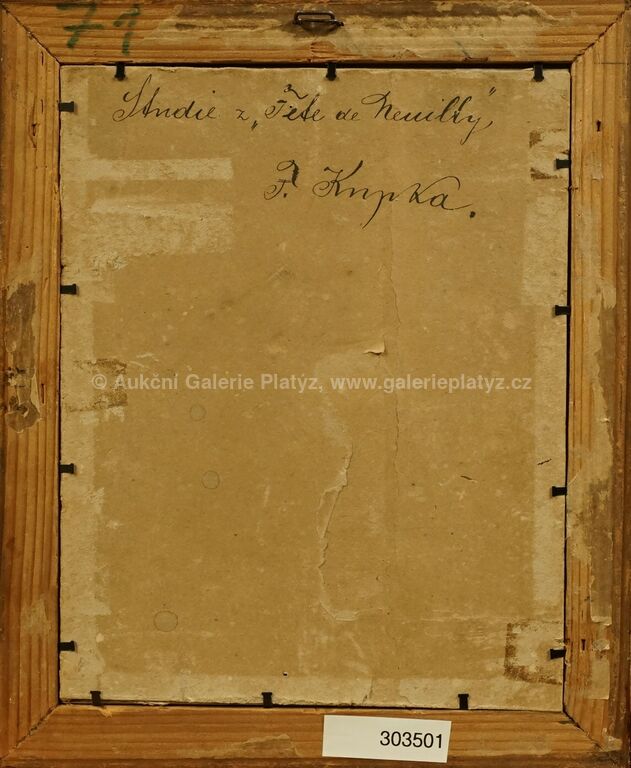 71
Studie z „Fête de Neuilly“,
F. Kupka.
© Aukční Galerie Platýz, www.galerieplatyz.cz
303501